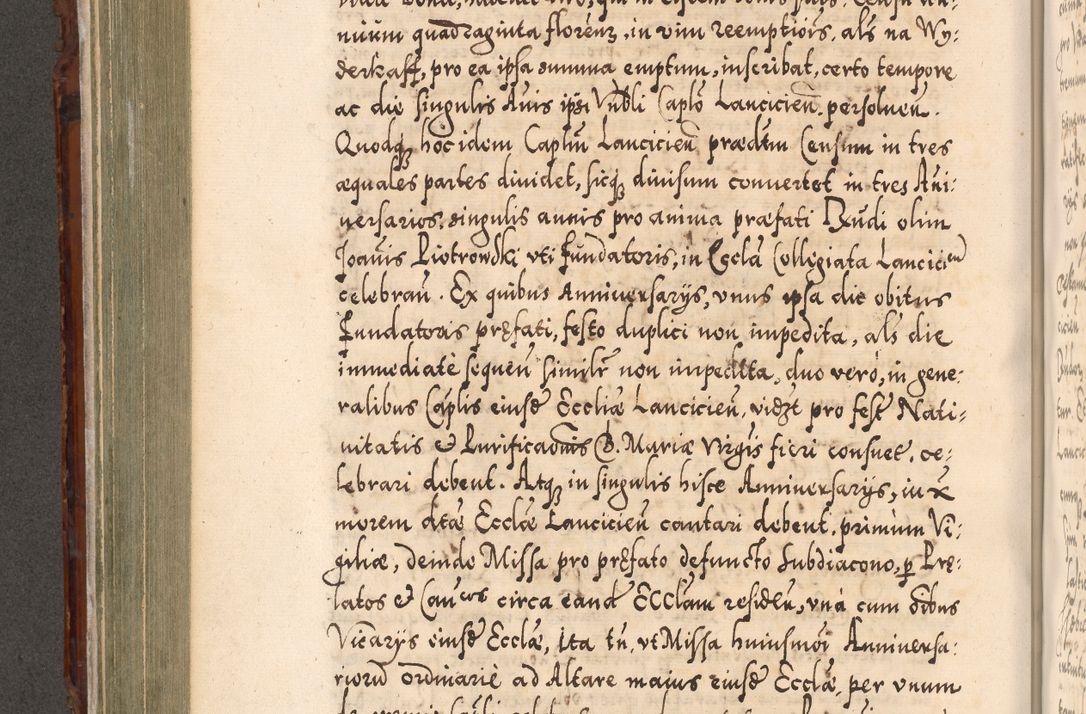 nuum quadraginta florenz, in vim reemptiois, als na Wy:
derkaff, pro ea ipsa summa emptum, inscribat, certo tempore
ac die singulis Anis ipsi Vnbli Caplo Lancicien. persoluen.
Quodq hoc idem Caplm Lancicien prædtm Censum in tres
æquales partes diuidet, sicq diuisum conuertet in tres Ani:
uersarios, singulis annis pro anima præfati Rudi olim
Joanis Piotrowski vti fundatoris, in Eccla Collegiata Lancicien
celebran. Ex quibus Anniuersarÿs, vnus ipsa die obitus
Fundatoris prefati, festo duplici non impedita, als die
immediatè sequen similr non impedita, duo verò, in gene:
ralibus Caplis eiusd Eccliæ Lancicien, videzt pro fest Nati:
uitatis & Purificaonis B. Mariæ Virgis fieri consuet, ce:
lebrari debent. Atq in singulis hisce Anniuersarÿs, iux
morem dtæ Ecclæ Lancicien cantari debent, primùm Vi:
giliæ, deinde Missa pro prefato defuncto Subdiacono, p Præ:
latos & Cancos circa eand Ecclam residen, vnà cum oibus
Vicarÿs eiusd Ecclæ, Ita tn, vt Missa huiusmoi Anniuersa:
rioru ordinariè ad Altare maius eiusd Ecclæ, per vnum